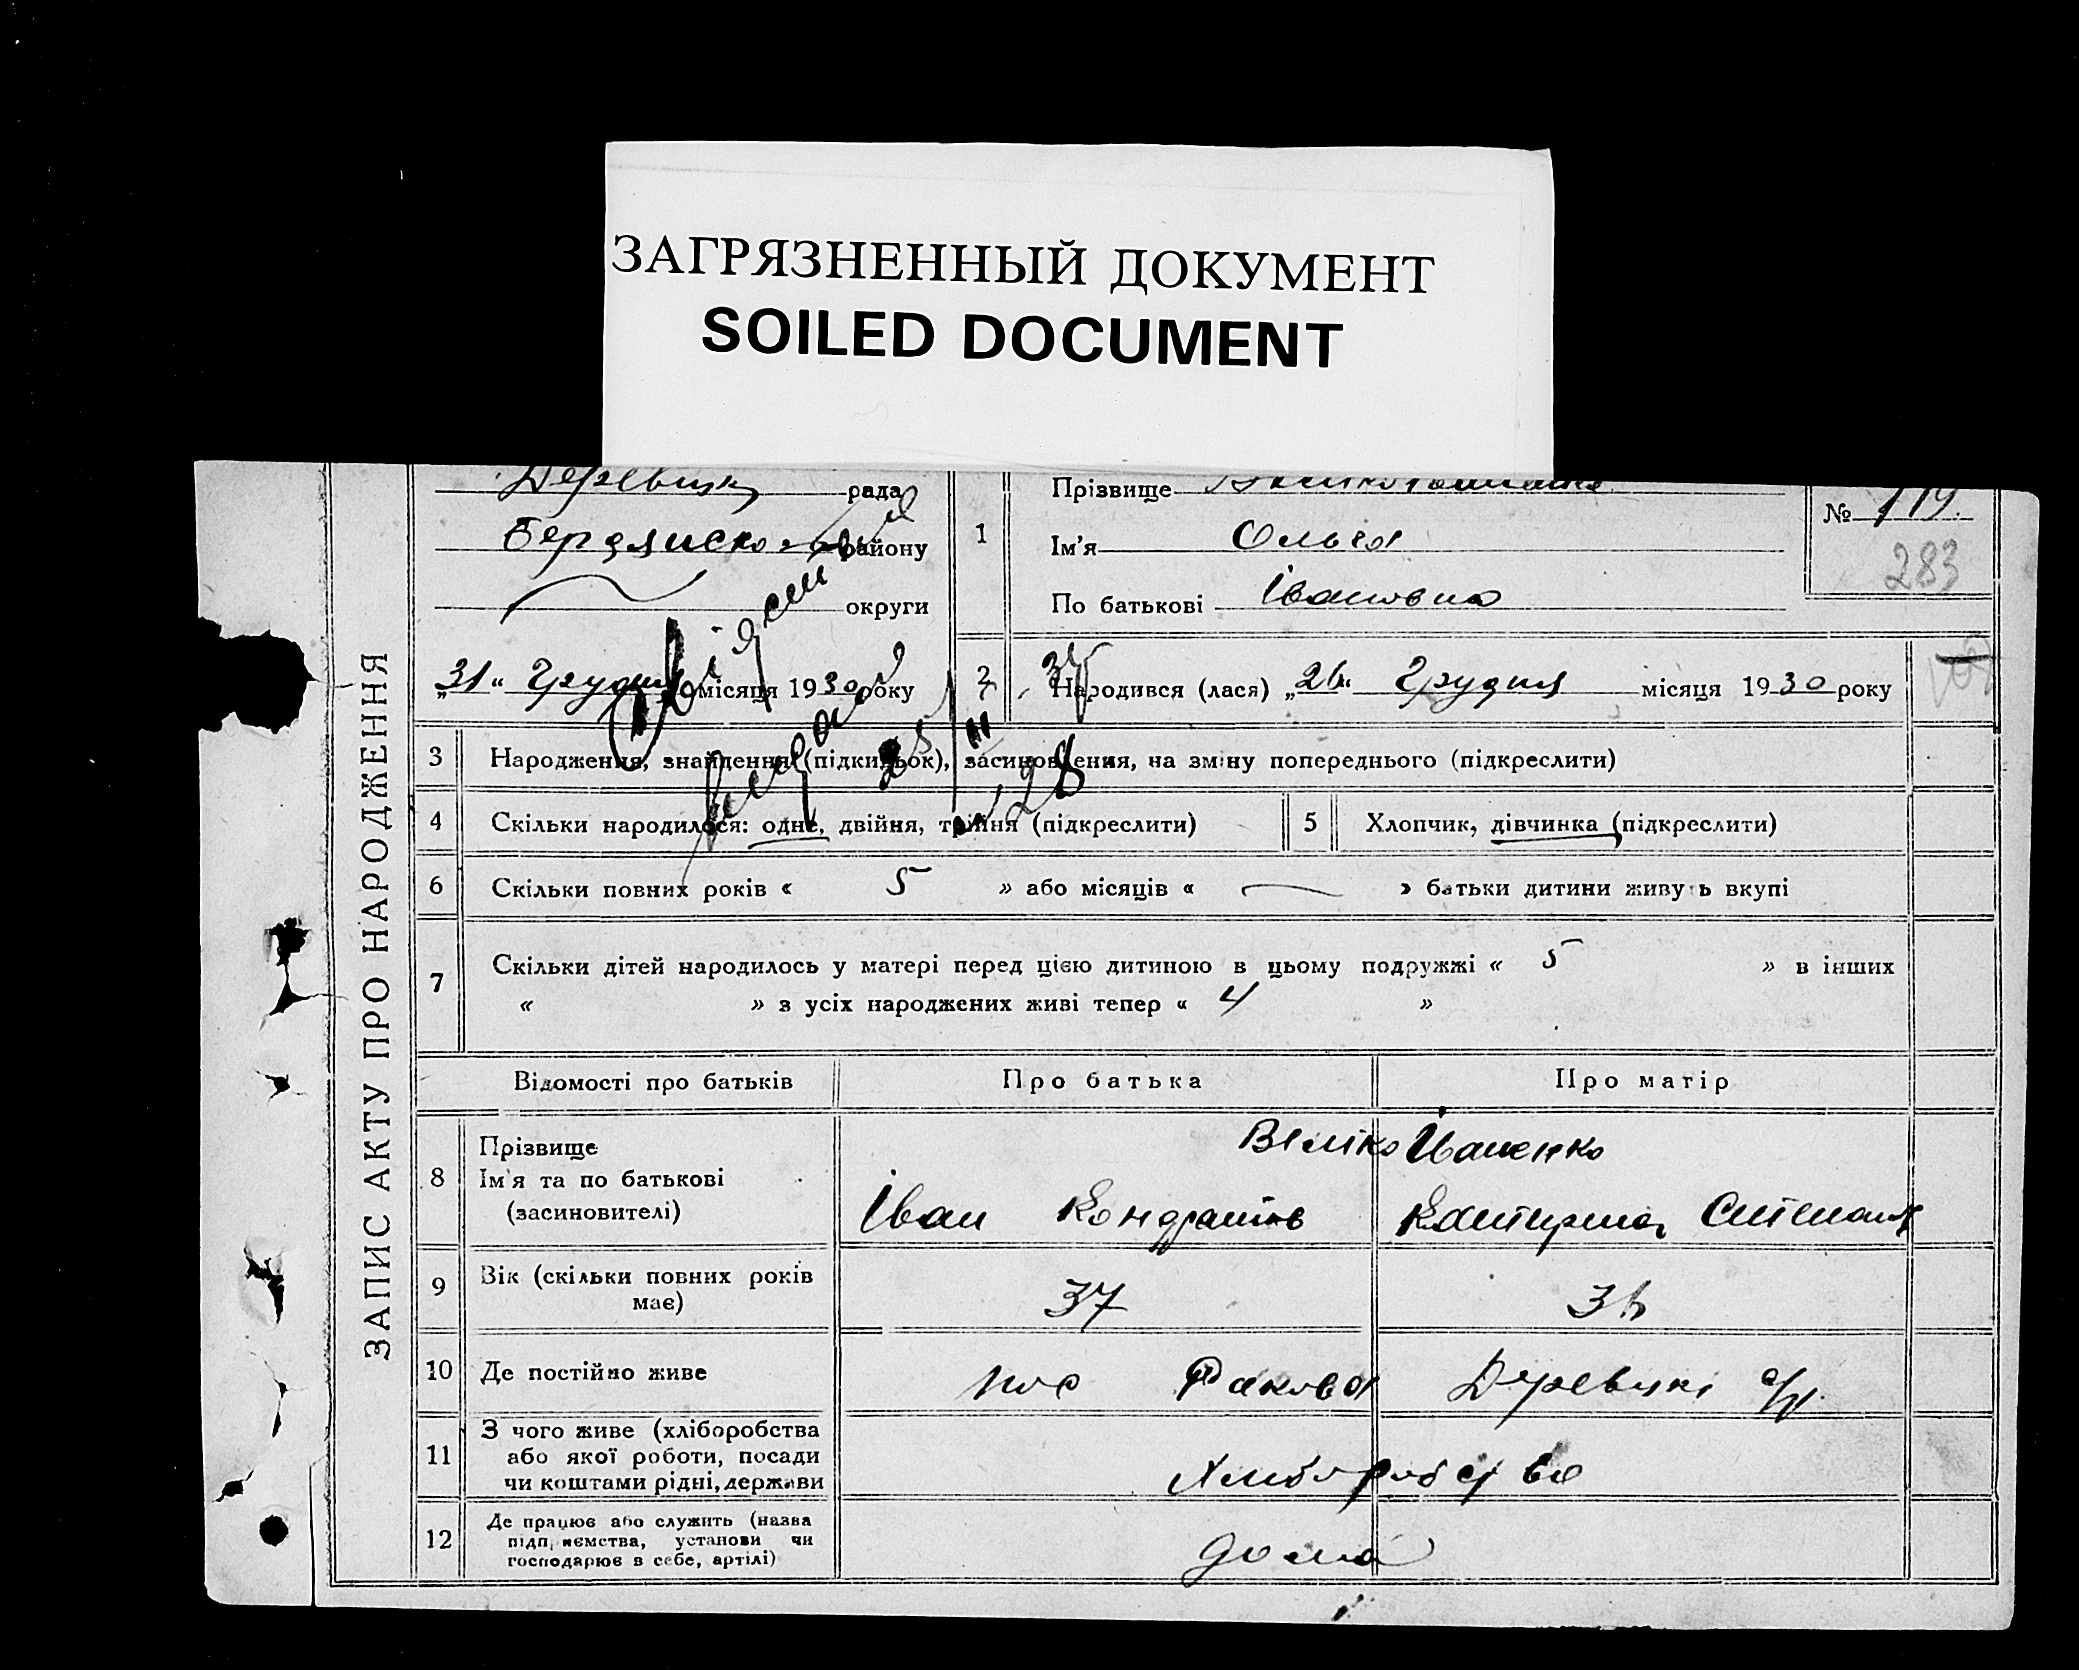 ЗАГРЯЗНЕННЫЙ ДОКУМЕНТ
SOILED DOCUMENT
ЗАПИС АКТУ ПРО НАРОДЖЕННЯ
рада
району
округи
„31“ Грудня місяця 1930 року
1
Прізвище
Ім'я Ольга
По батькові Івановна
№ 119.
283
2
Народився (лася) „26“ Грудня місяця 1930 року
3 Народження, знайдення (підкидьок), засиновлення, на зміну попереднього (підкреслити)
4 Скільки народилося: одне, двійня, трійня (підкреслити)
5 Хлопчик, дівчинка (підкреслити)
6 Скільки повних років « 5 » або місяців « — » батьки дитини живуть вкупі
7 Скільки дітей народилось у матері перед цією дитиною в цьому подружжі « 5 » в інших
« » з усіх народжених живі тепер « 4 »
Відомості про батьків
Про батька
Про матір
8 Прізвище
Ім'я та по батькові
(засиновителі)
Веліко Іваненко
Іван Кондратов
Катирина Степанов
9 Вік (скільки повних років
має)
37
36
10 Де постійно живе
пос Раково Деревцкі с/р.
11 З чого живе (хліборобства
або якої роботи, посади
чи коштами рідні, держави
Хлиборобство
12 Де працює або служить (назва
підприємства, установи чи
господарює в себе, артілі)
дома